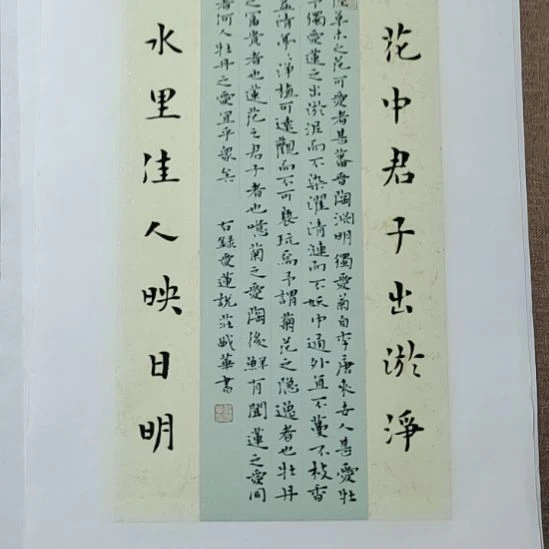 花中君子出淤淨
草木之花可愛者甚蕃晉陶淵明獨愛菊自李唐來世人甚愛牡
獨愛蓮之出淤泥而不染濯清漣而不妖中通外直不蔓不枝香
益清亭〻淨植可遠觀而不可褻玩焉予謂菊花之隱逸者也牡丹
之富貴者也蓮花之君子者也噫菊之愛陶後鮮有聞蓮之愛同
者何人牡丹之愛宜乎眾矣
右錄愛蓮說莊華書
水里佳人映日明